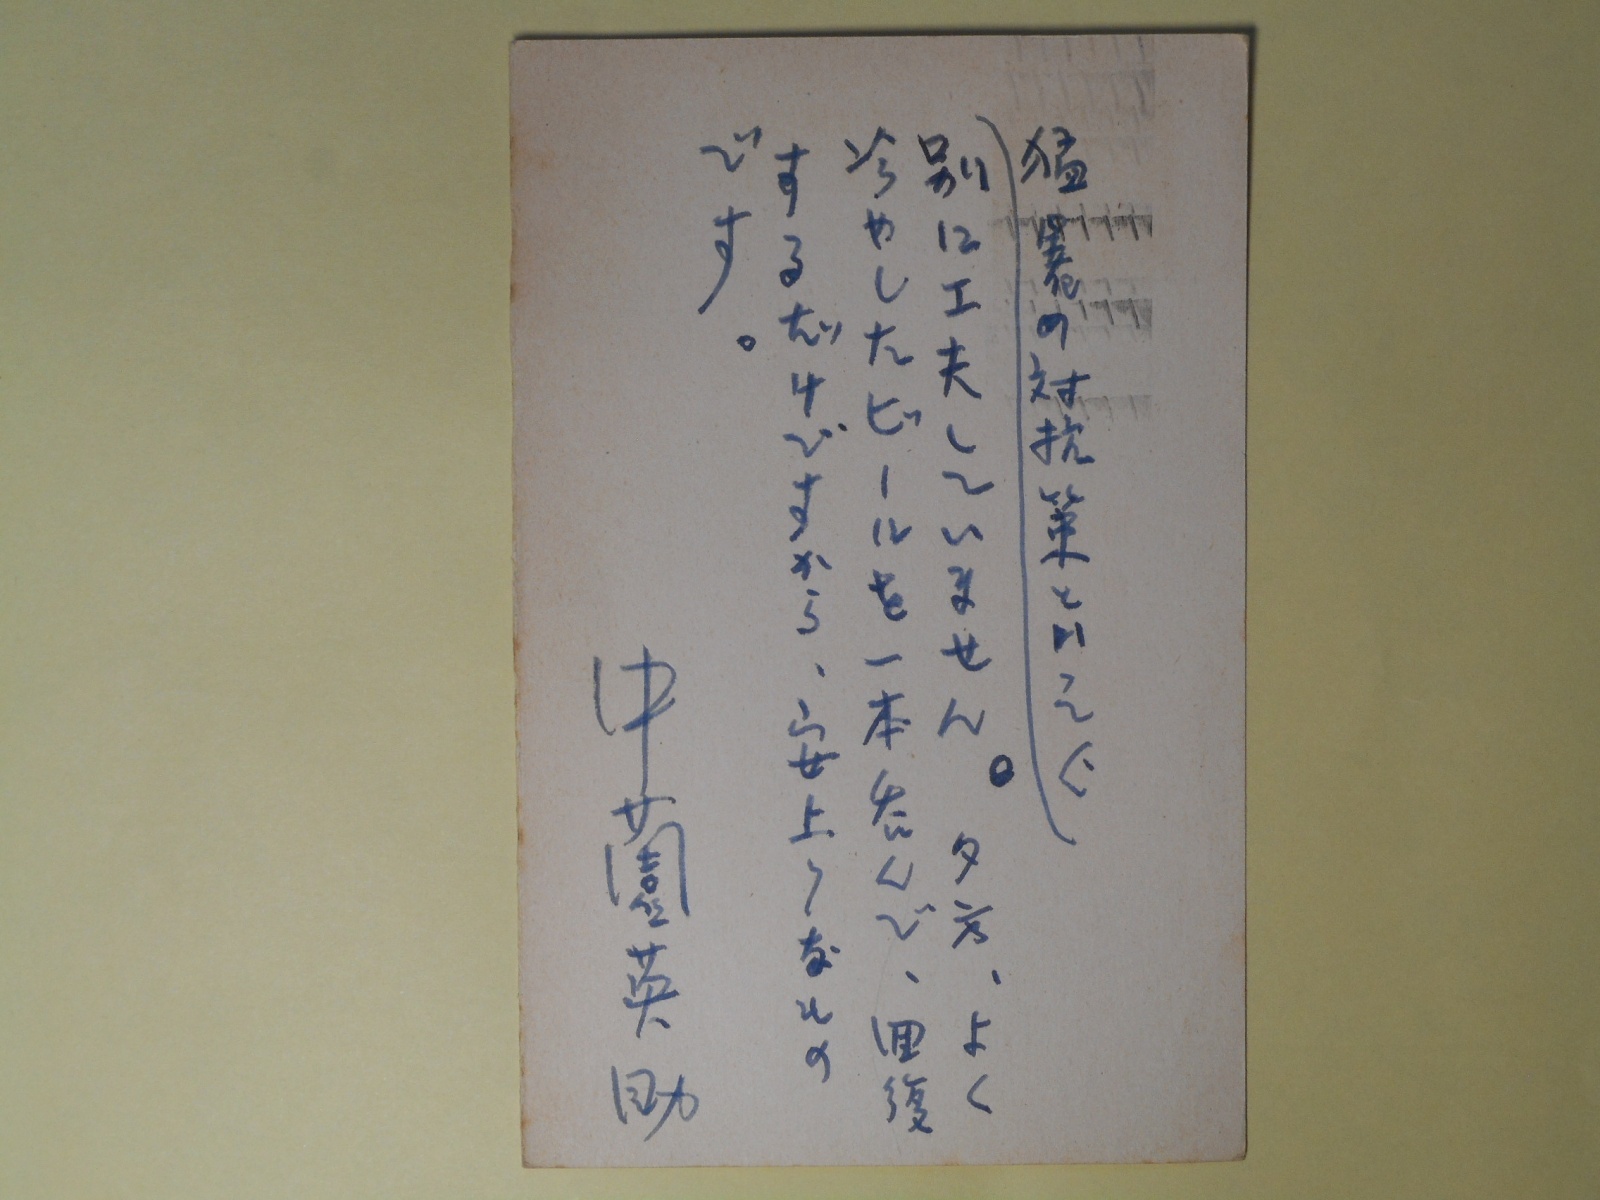 猛暑の対抗策と
別に工夫していません。夕方、よく
冷やしたビールを一本呑んで、回復
するだけですから、安上りなもの
です。
中薗英助